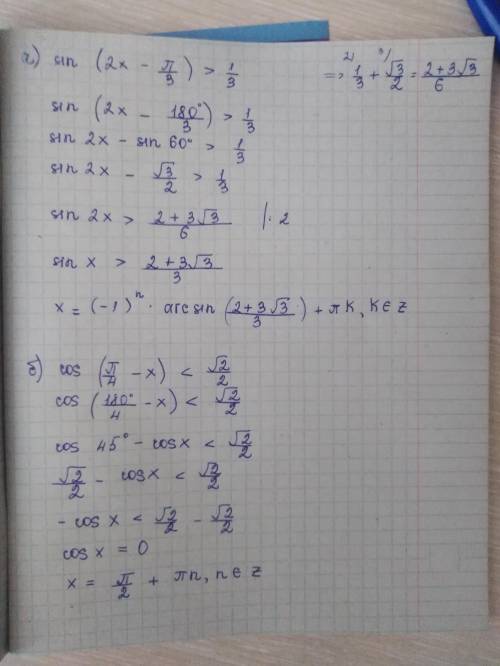 а) sin (2x - π/3) > 1/3 => 1/3 + √3/2 = (2+3√3)/6
2) 3)
sin (2x - 180°/3) > 1/3
sin 2x - sin 60° > 1/3
sin 2x - √3/2 > 1/3
sin 2x > (2+3√3)/6 |· 2
sin x > (2+3√3)/3
x = (-1)ⁿ · arcsin ((2+3√3)/3) + πK, K∈z
б) cos (π/4 - x) < √2/2
cos (180°/4 - x) < √2/2
cos 45° - cosx < √2/2
√2/2 - cosx < √2/2
- cos x < √2/2 - √2/2
cos x = 0
x = π/2 + πn, n∈z